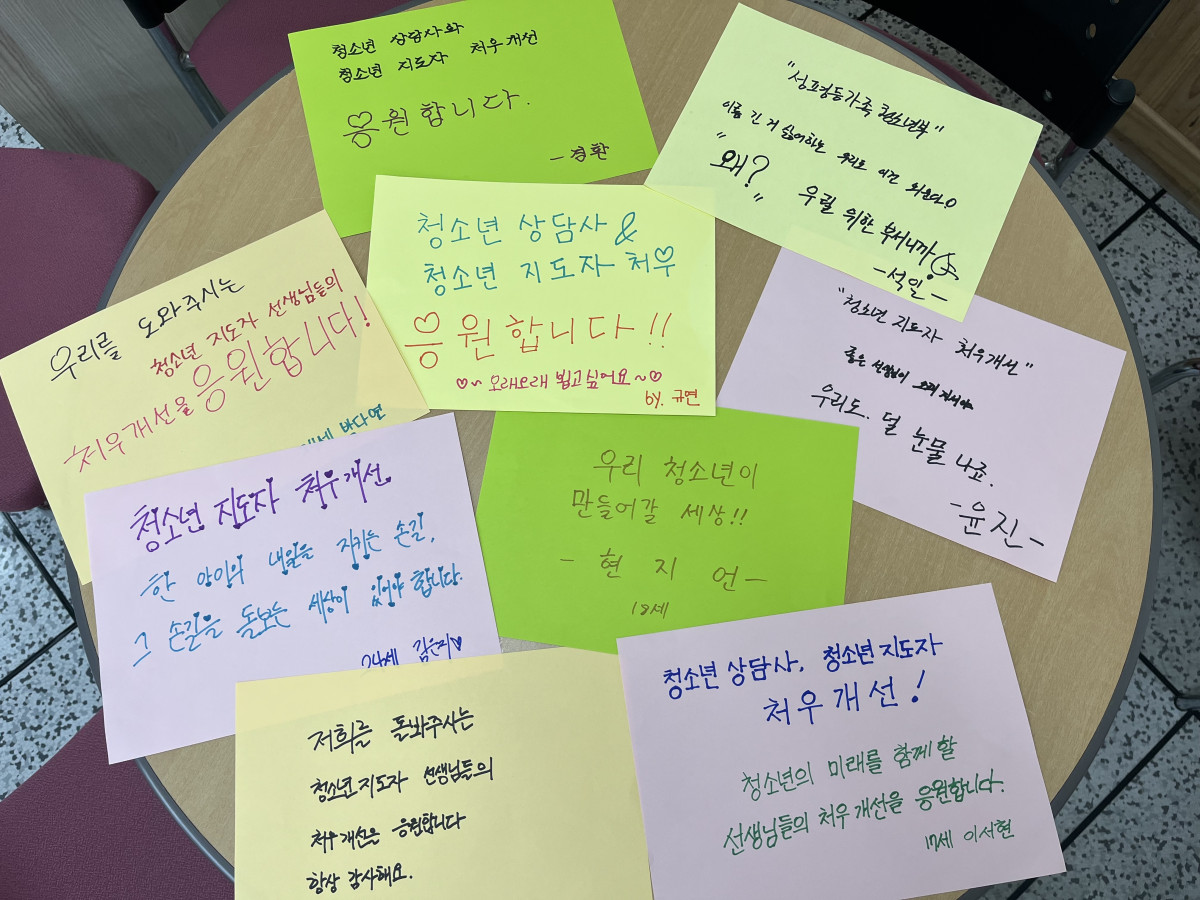 청소년 상담사와
청소년 지도자 처우개선
응원합니다.
- 경환
"성평등가족청소년부"
이름 긴 거 싫어하는 우리도 이건 외운다!
"왜?" 우릴 위한 부서니까
- 석인 -
청소년 상담사 &
청소년 지도자 처우
응원합니다!!
♡~ 오래오래 뵙고싶어요 ~♡
by. 규연
우리를 도와주시는
청소년 지도자 선생님들의
처우개선을 응원합니다!
박다연
"청소년 지도자 처우개선"
좋은 선생님이 오래 계셔야
우리도. 덜 눈물 나죠.
- 윤진 -
청소년 지도자 처우개선
한 아이의 내일을 지키는 손길,
그 손길을 돌보는 세상이 있어야 합니다.
24세 김은지♡
우리 청소년이
만들어갈 세상!!
- 현지언 -
18세
저희를 돌봐주시는
청소년지도자 선생님들의
처우개선을 응원합니다
항상 감사해요.
청소년 상담사, 청소년 지도자
처우개선!
청소년의 미래를 함께할
선생님들의 처우개선을 응원합니다.
17세 이서현